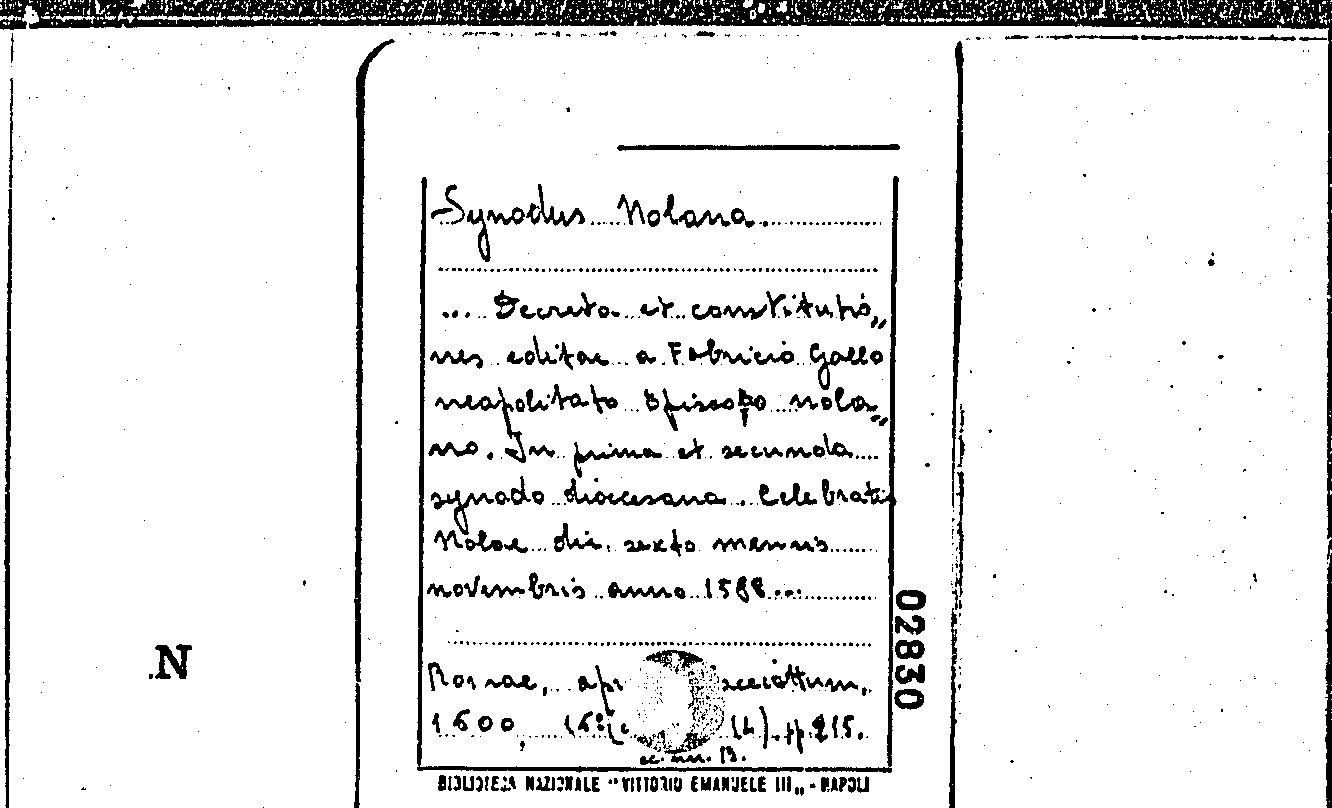 Synodus Nolana.
... Decreta et constitutio„
nes editae a Fabricio Gallo
neapolitato Episcopo nola„
no. In prima et secunda
synodo diocesana. Celebratis
Nolae die sexto mensis
novembris anno 1588...
02830
N
Romae, 
1600, (4). pp. 215.
cc. nn. 13.
BIBLIOTECA NAZIONALE "VITTORIO EMANUELE III„ - NAPOLI